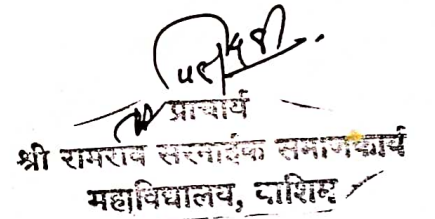 प्राचार्य
श्री रामराव सरनाईक समाजकार्य
महाविद्यालय, वाशिम